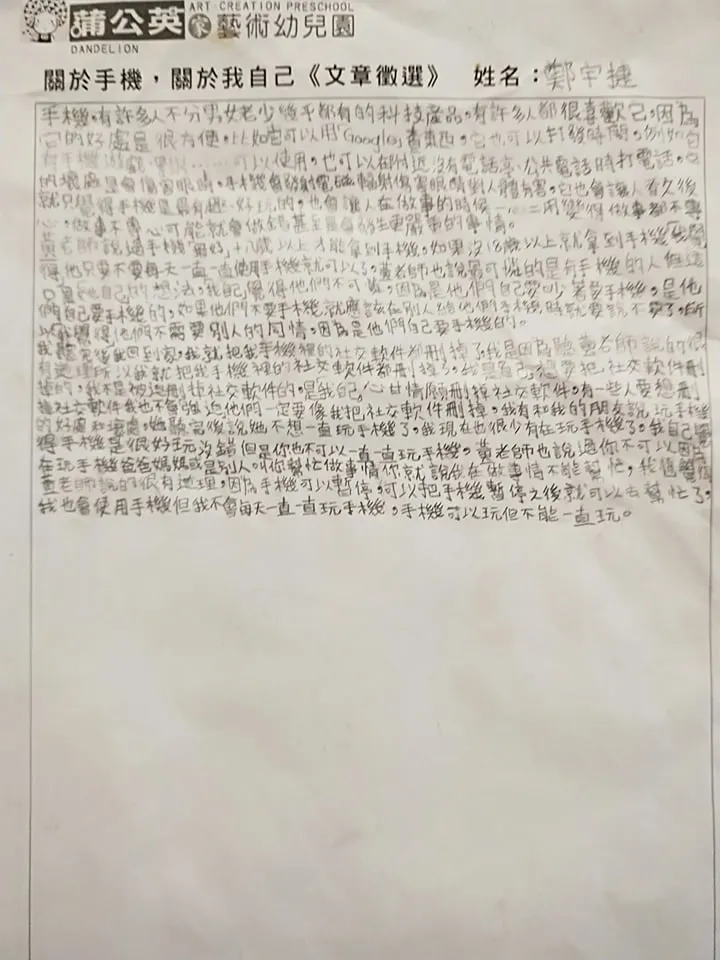 ART-CREATION PRESCHOOL
蒲公英家藝術幼兒園
DANDELION
關於手機,關於我自己《文章徵選》 姓名:鄭宇捷
手機。有許多人不分男女老少幾乎都有的科技產品。有許多人都很喜歡它,因為
它的好處是很方便。比如它可以用「Google」查東西。它也可以打發時間。例如它
有手機遊戲……可以使用。也可以在附近沒有電話亭、公共電話時打電話。它
的壞處是會傷害眼睛。手機會發射電磁輻射傷害眼睛對人體有害。它也會讓人看久後
就只覺得手機是最有趣、好玩的。也會讓人在做事的時候一心二用變得做事都不專
心。做事不專心可能就會做錯甚至最會發生更嚴重的事情。
黃老師說過手機「剛好」十八歲以上才能拿到手機。如果沒18歲以上就拿到手機我覺
得他只要不要每天一直一直使用手機就可以了。黃老師也說最可憐的是有手機的人但這
只是她自己的想法。我自己覺得他們不可憐。因為是他們自己愛吵著要手機。是他
們自己要手機的。如果他們不要手機就應該在別人給他們手機時就要說不要了。所
以我覺得他們不需要別人的同情。因為是他們自己要手機的。
我聽完後我回到家。我就把我手機裡的社交軟件都刪掉了。我是因為聽黃老師說的很
有道理所以我就把我手機裡的社交軟件都刪掉了。我是自己想要把社交軟件刪
掉的。我不是被迫刪掉社交軟件的。是我自己心甘情願刪掉社交軟件。有一些人要想刪
掉社交軟件我也不會強迫他們一定要像我把社交軟件刪掉。我有和我的朋友說玩手機
的好處和壞處。她聽完後說她不想一直玩手機了。我現在也很少有在玩手機了。我自己覺
得手機是很好玩沒錯但是你也不可以一直一直玩手機。黃老師也說過你不可以因為
在玩手機爸爸媽媽或是別人叫你幫忙做事情你就說我在做事情不能幫忙。我覺得
黃老師說的很有道理。因為手機可以暫停。可以把手機暫停之後就可以去幫忙了。
我也會使用手機但我不會每天一直一直玩手機。手機可以玩但不能一直玩。